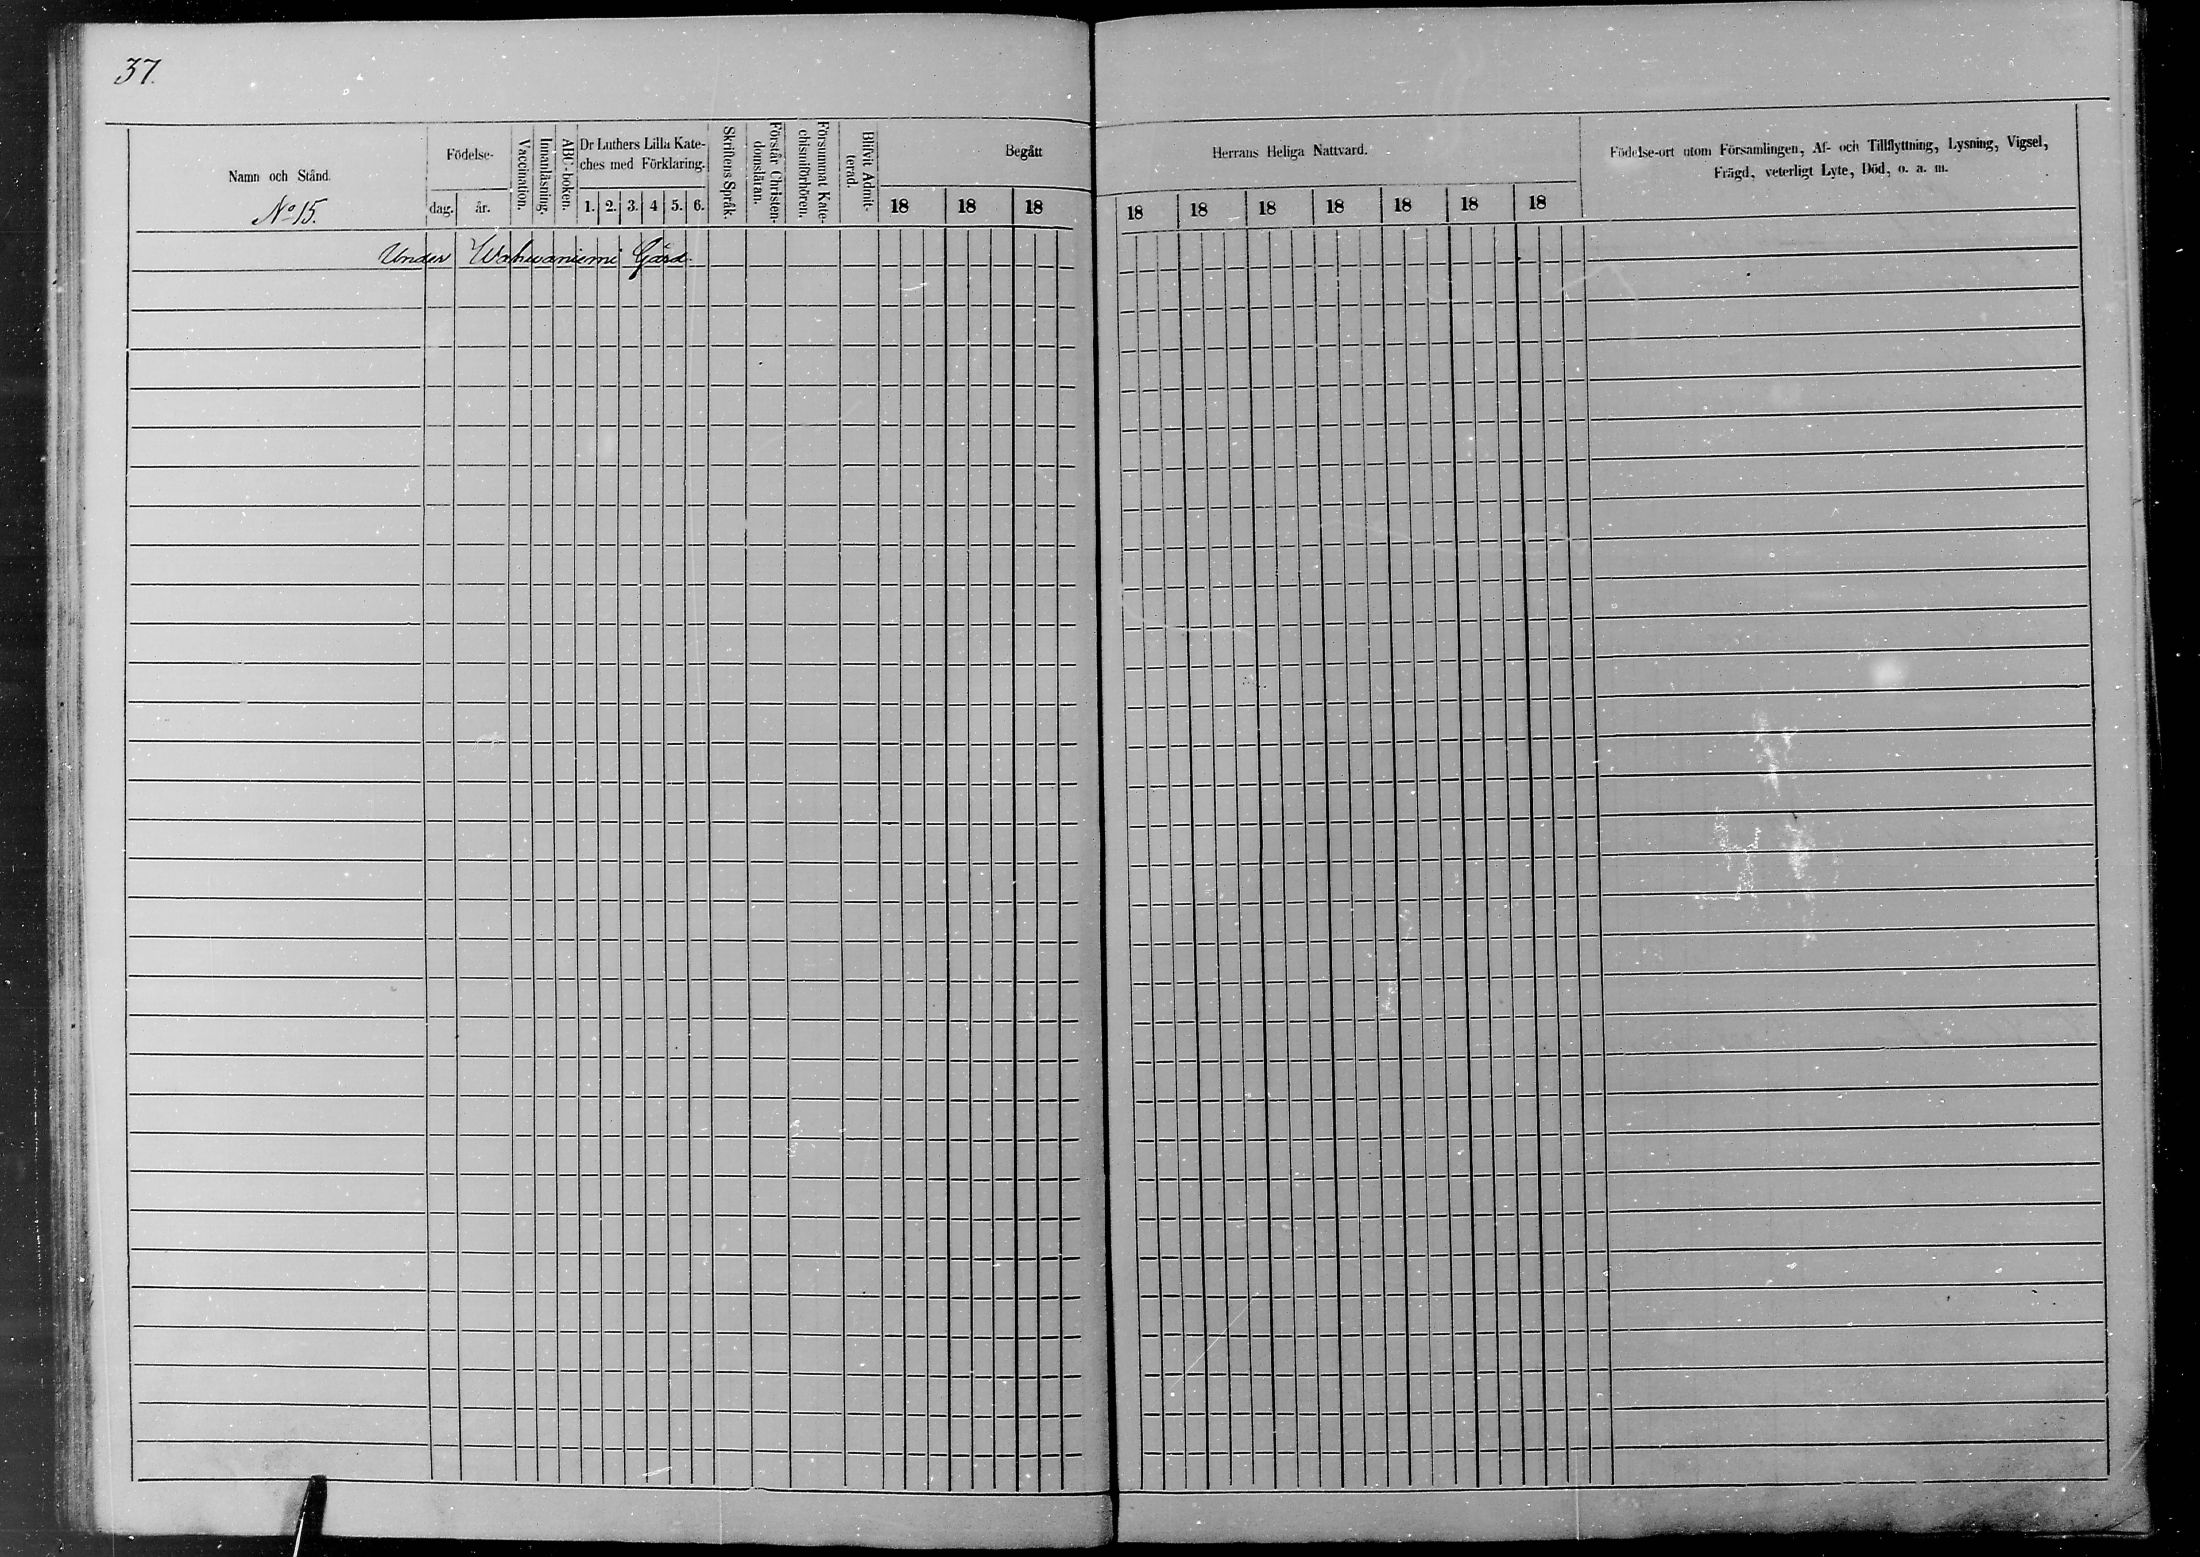 37.
Namn och Stånd.
No 15.
Födelse-
dag.
år.
Vaccination.
Innanläsning.
ABC-boken.
Dr Luthers Lilla Kate-
ches med Förklaring.
1. 2. 3. 4 5. 6.
Skriftens Språk.
Förstår Christen-
domsläran.
Försummat Kate-
chismiförhören.
Blifvit Admit-
terad.
Begått
18 18 18
Herrans Heliga Nattvard.
18 18 18 18 18 18 18
Födelse-ort utom Församlingen, Af- och Tillflyttning, Lysning, Vigsel,
Frägd, veterligt Lyte, Död, o. a. m.
Under Wahwaniemi Gård.